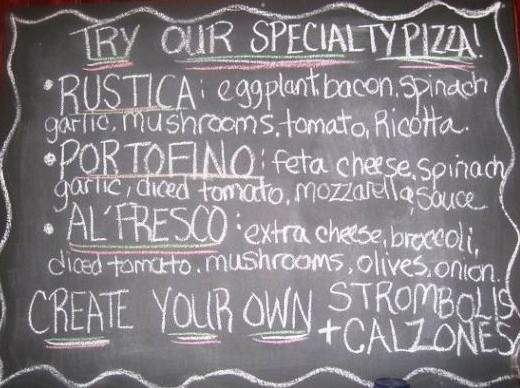 TRY OUR SPECIALTY PIZZA!
• RUSTICA: eggplant, bacon, spinach
garlic, mushrooms, tomato, Ricotta.
• PORTOFINO: feta cheese, spinach
garlic, diced tomato, mozzarella, sauce
• AL'FRESCO: extra cheese, broccoli,
diced tomato, mushrooms, olives, onion.
CREATE YOUR OWN STROMBOLIS
+ CALZONES